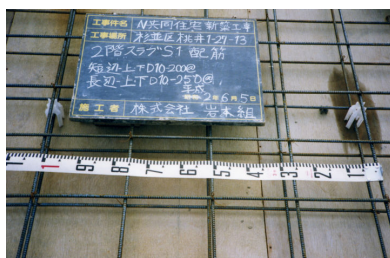 工事件名 N共同住宅新築工事
工事場所 杉並区桃井1-29-13
2階スラブS1 配筋
短辺-上下D10-200@
長辺-上下D10-250@
平成
2年6月5日
施工者 株式会社 岩本組
1 9 8 7 6 5 4 3 2 1